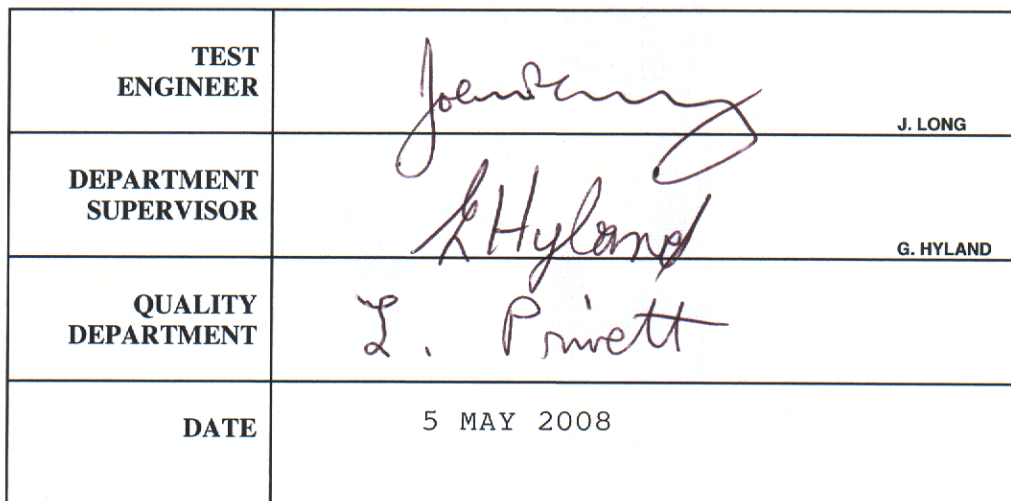 TEST
ENGINEER
J. LONG
DEPARTMENT
SUPERVISOR
G Hyland
G. HYLAND
QUALITY
DEPARTMENT
L. Privett
DATE
5 MAY 2008